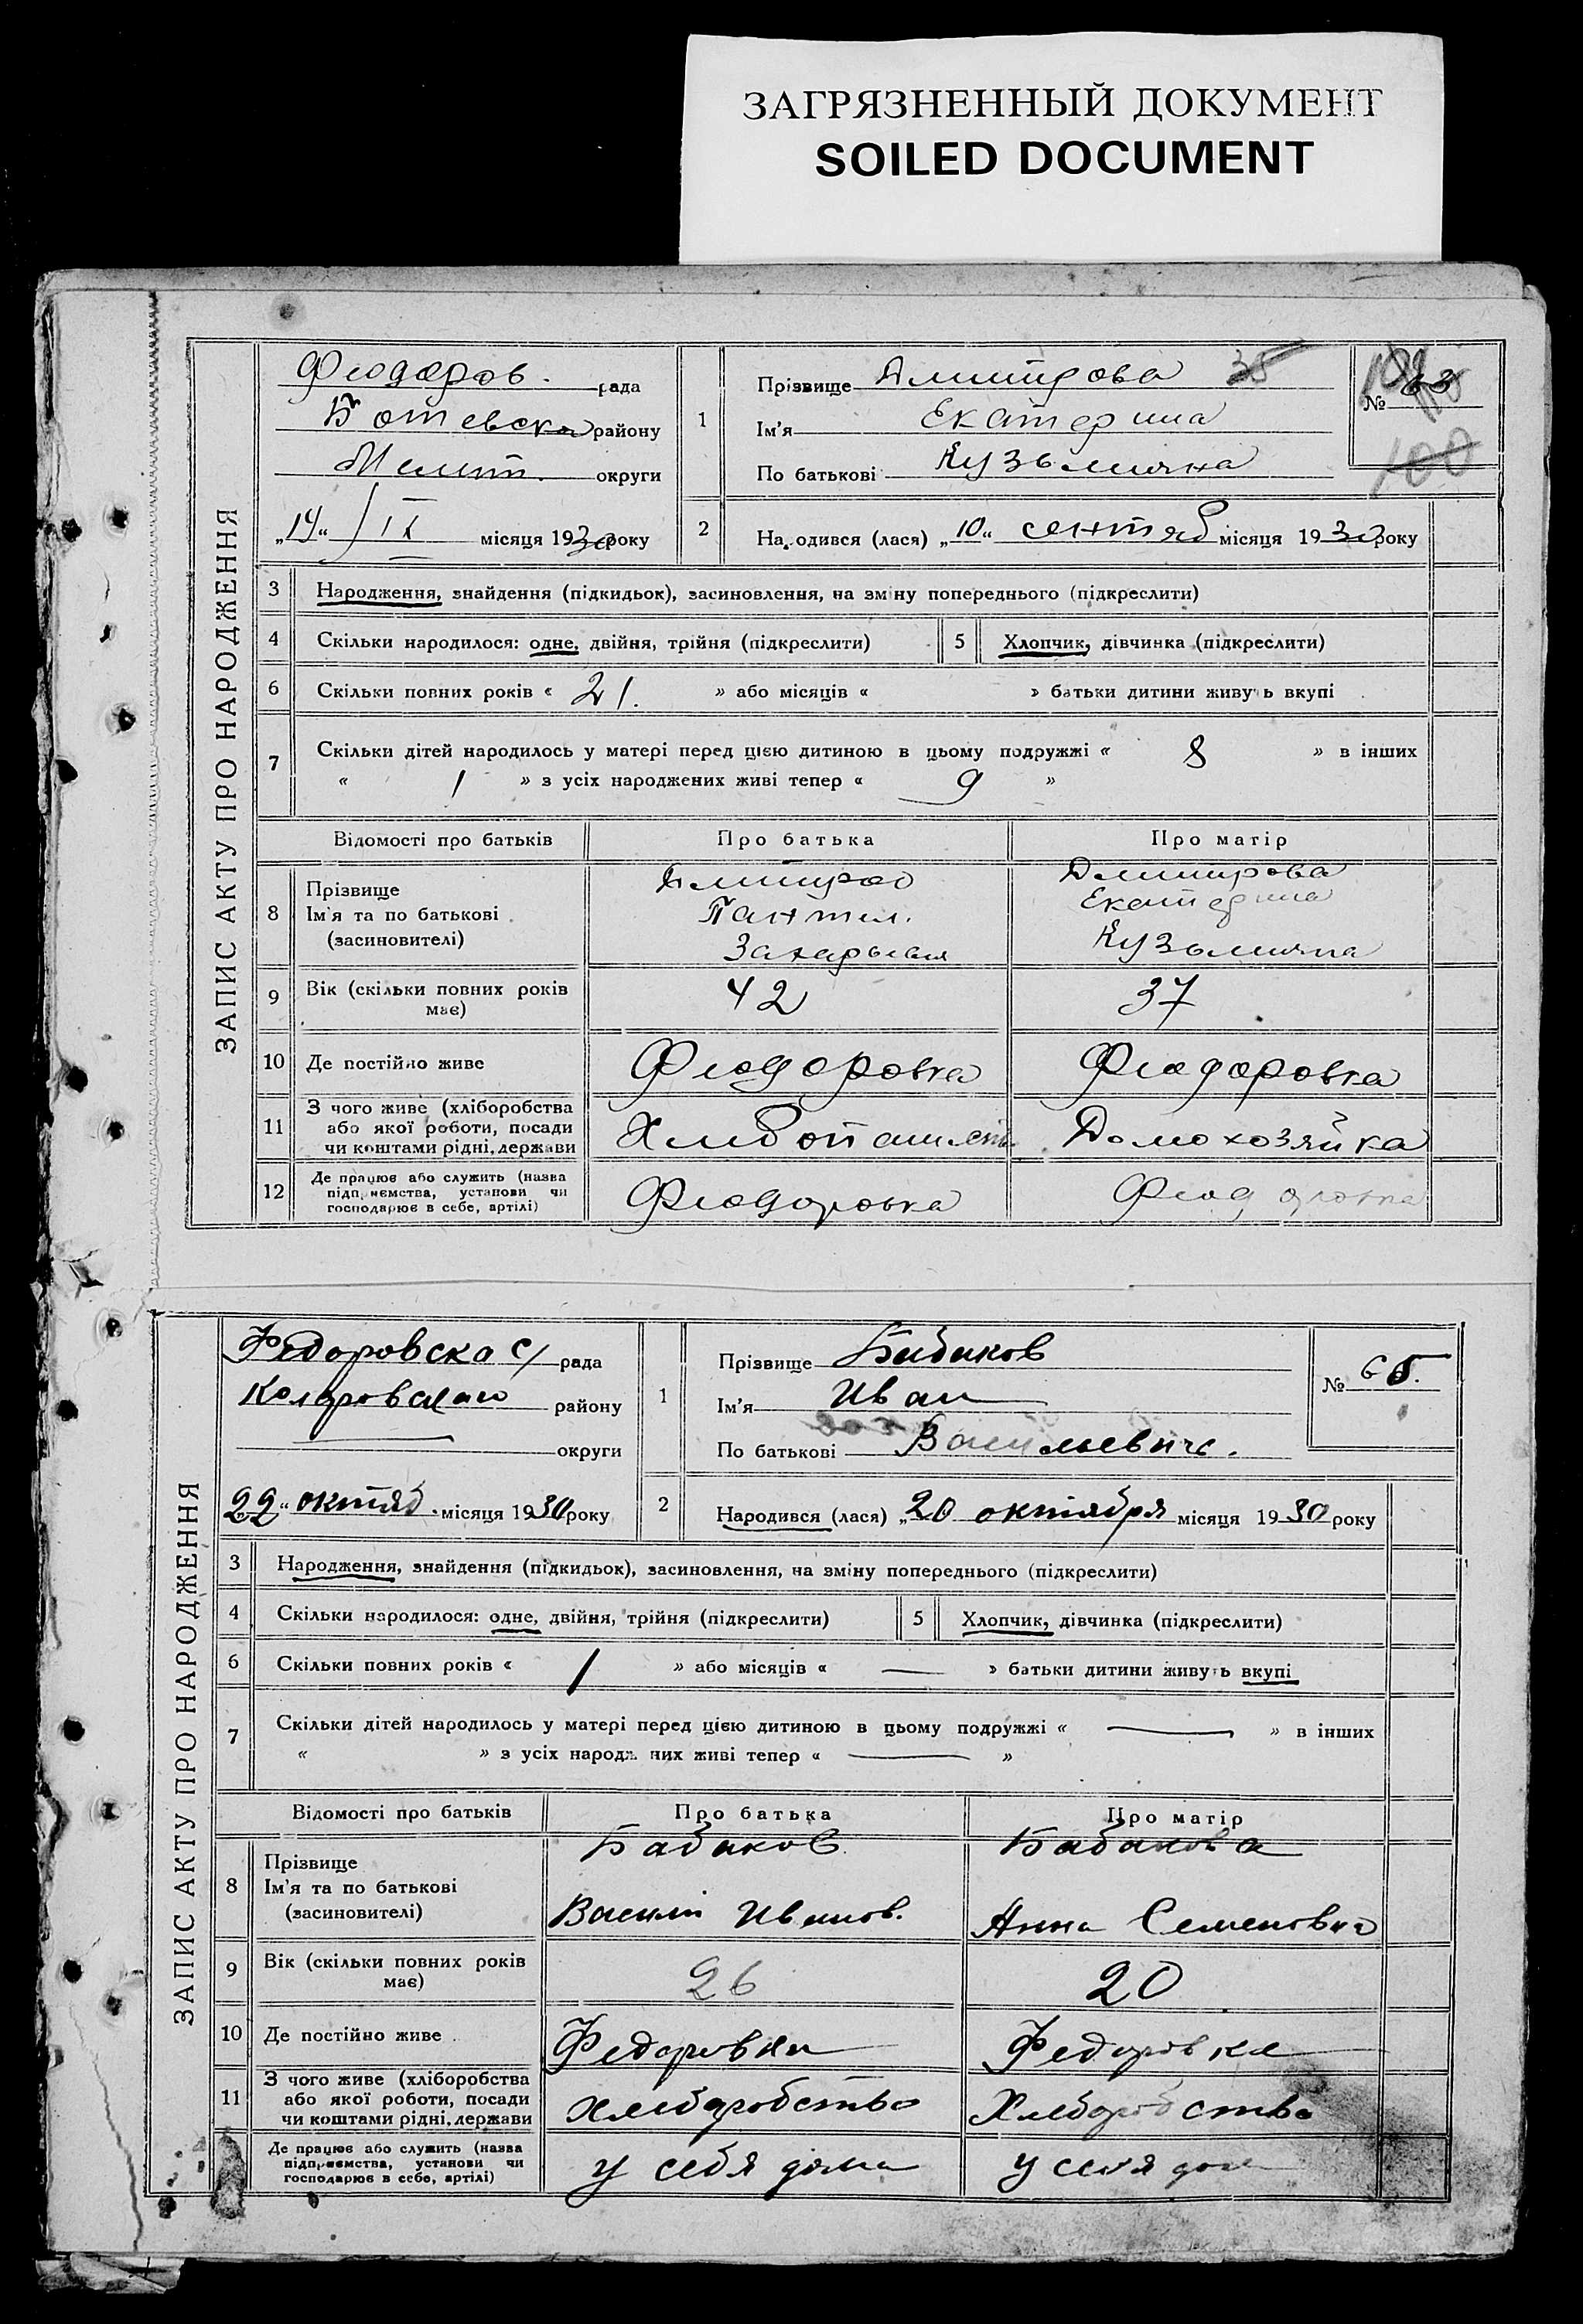 ЗАГРЯЗНЕННЫЙ ДОКУМЕНТ
SOILED DOCUMENT
ЗАПИС АКТУ ПРО НАРОДЖЕННЯ
Феодоров. рада
Ботевска району
Мелит. округи
„14“ IX місяця 1930 року
1
Прізвище Дмитрова 35
Ім'я Екатерина
По батькові Кузьминична
№ 63
100
2
Народився (лася) „10“ сентяб місяця 1930 року
3 Народження, знайдення (підкидьок), засиновлення, на зміну попереднього (підкреслити)
4 Скільки народилося: одне, двійня, трійня (підкреслити) 5 Хлопчик, дівчинка (підкреслити)
6 Скільки повних років « 21. » або місяців « » батьки дитини живуть вкупі
7 Скільки дітей народилось у матері перед цією дитиною в цьому подружжі « 8 » в інших
« 1 » з усіх народжених живі тепер « 9 »
Відомості про батьків Про батька Про матір
8 Прізвище
Ім'я та по батькові
(засиновителі)
Дмитров
Пантел.
Захарьев
Дмитрова
Екатерина
9 Вік (скільки повних років має) 42 37
10 Де постійно живе Феодоровка Феодоровка
11 З чого живе (хліборобства
або якої роботи, посади
чи коштами рідні, держави
Домохозяйка
12 Де працює або служить (назва
підприємства, установи чи
господарює в себе, артілі)
Феодоровка Феодоровка
ЗАПИС АКТУ ПРО НАРОДЖЕННЯ
Федоровска с/ рада
Коларовского району
округи
„22“ октяб. місяця 1930 року
1
Прізвище Бабаков
Ім'я Иван
По батькові Васильевич.
№ 65.
2
Народився (лася) „20 октября місяця 1930 року
3 Народження, знайдення (підкидьок), засиновлення, на зміну попереднього (підкреслити)
4 Скільки народилося: одне, двійня, трійня (підкреслити) 5 Хлопчик, дівчинка (підкреслити)
6 Скільки повних років « 1 » або місяців « — » батьки дитини живуть вкупі
7 Скільки дітей народилось у матері перед цією дитиною в цьому подружжі « — » в інших
« » з усіх народжених живі тепер « — »
Відомості про батьків Про батька Про матір
8 Прізвище
Ім'я та по батькові
(засиновителі)
Бабаков
Василий Иванов.
Бабакова
Анна Семеновна
9 Вік (скільки повних років має) 26 20
10 Де постійно живе Федоровка Федоровка
11 З чого живе (хліборобства
або якої роботи, посади
чи коштами рідні, держави
хлеборобство Хлеборобство
12 Де працює або служить (назва
підприємства, установи чи
господарює в себе, артілі)
у себя дома у себя дома